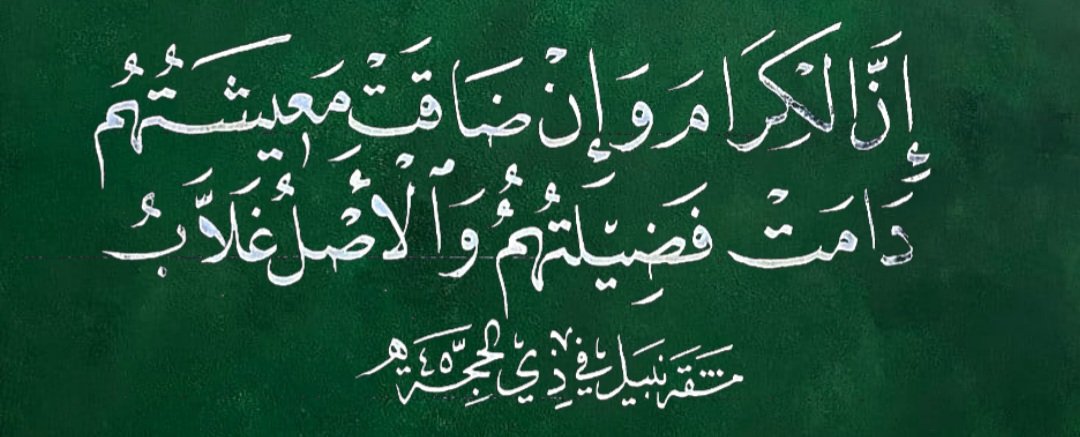 إِنَّ الْكِرَامَ وَإِنْ ضَاقَتْ مَعِيشَتُهُمُ
دَامَتْ فَضِيلَتُهُمُ وَٱلْأَصْلُ غَلَّابُ
مشقه نبيل في ذي الحجة ٤٥ هـ